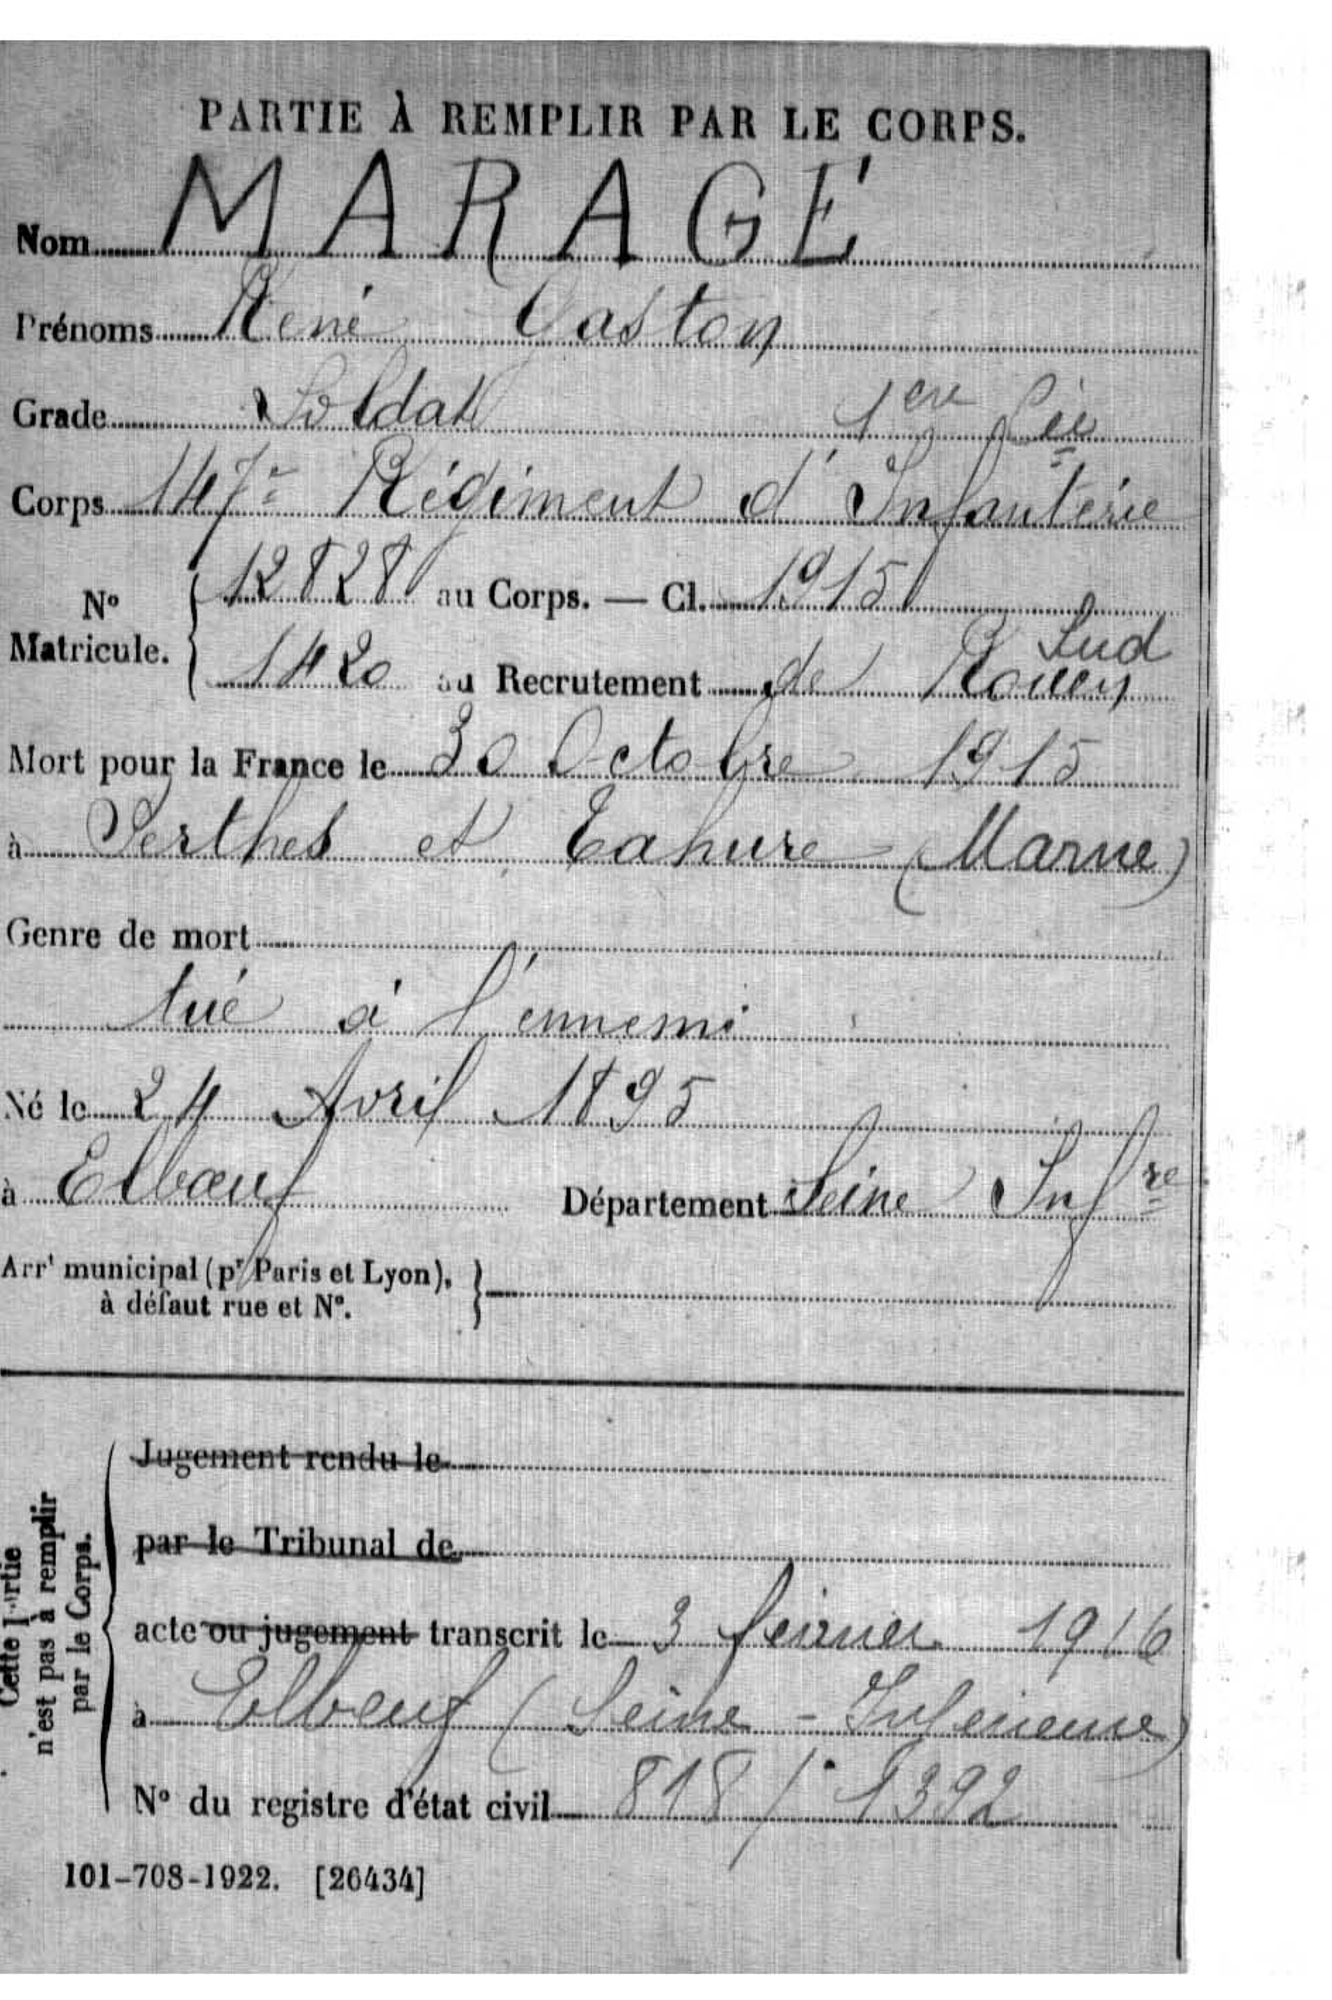 PARTIE À REMPLIR PAR LE CORPS.
Nom MARAGÉ
Prénoms René Gaston
Grade Soldat 1ere Cie
Corps 147e Régiment d'Infanterie
No Matricule. { 12828 au Corps. — Cl. 1915
1420 au Recrutement de Rouen Sud
Mort pour la France le 30 Octobre 1915
à Perthes et Tahure (Marne)
Genre de mort
tué à l'ennemi
Né le 24 Avril 1895
à Elbœuf Département Seine Infre
Arrt municipal (pr Paris et Lyon), }
à défaut rue et N°.
Cette Partie
n'est pas à remplir
par le Corps.
Jugement rendu le
par le Tribunal de
acte ou jugement transcrit le 3 février 1916
à Elbeuf (Seine - Inférieure)
N° du registre d'état civil 818 / 1392
101-708-1922. [26434]